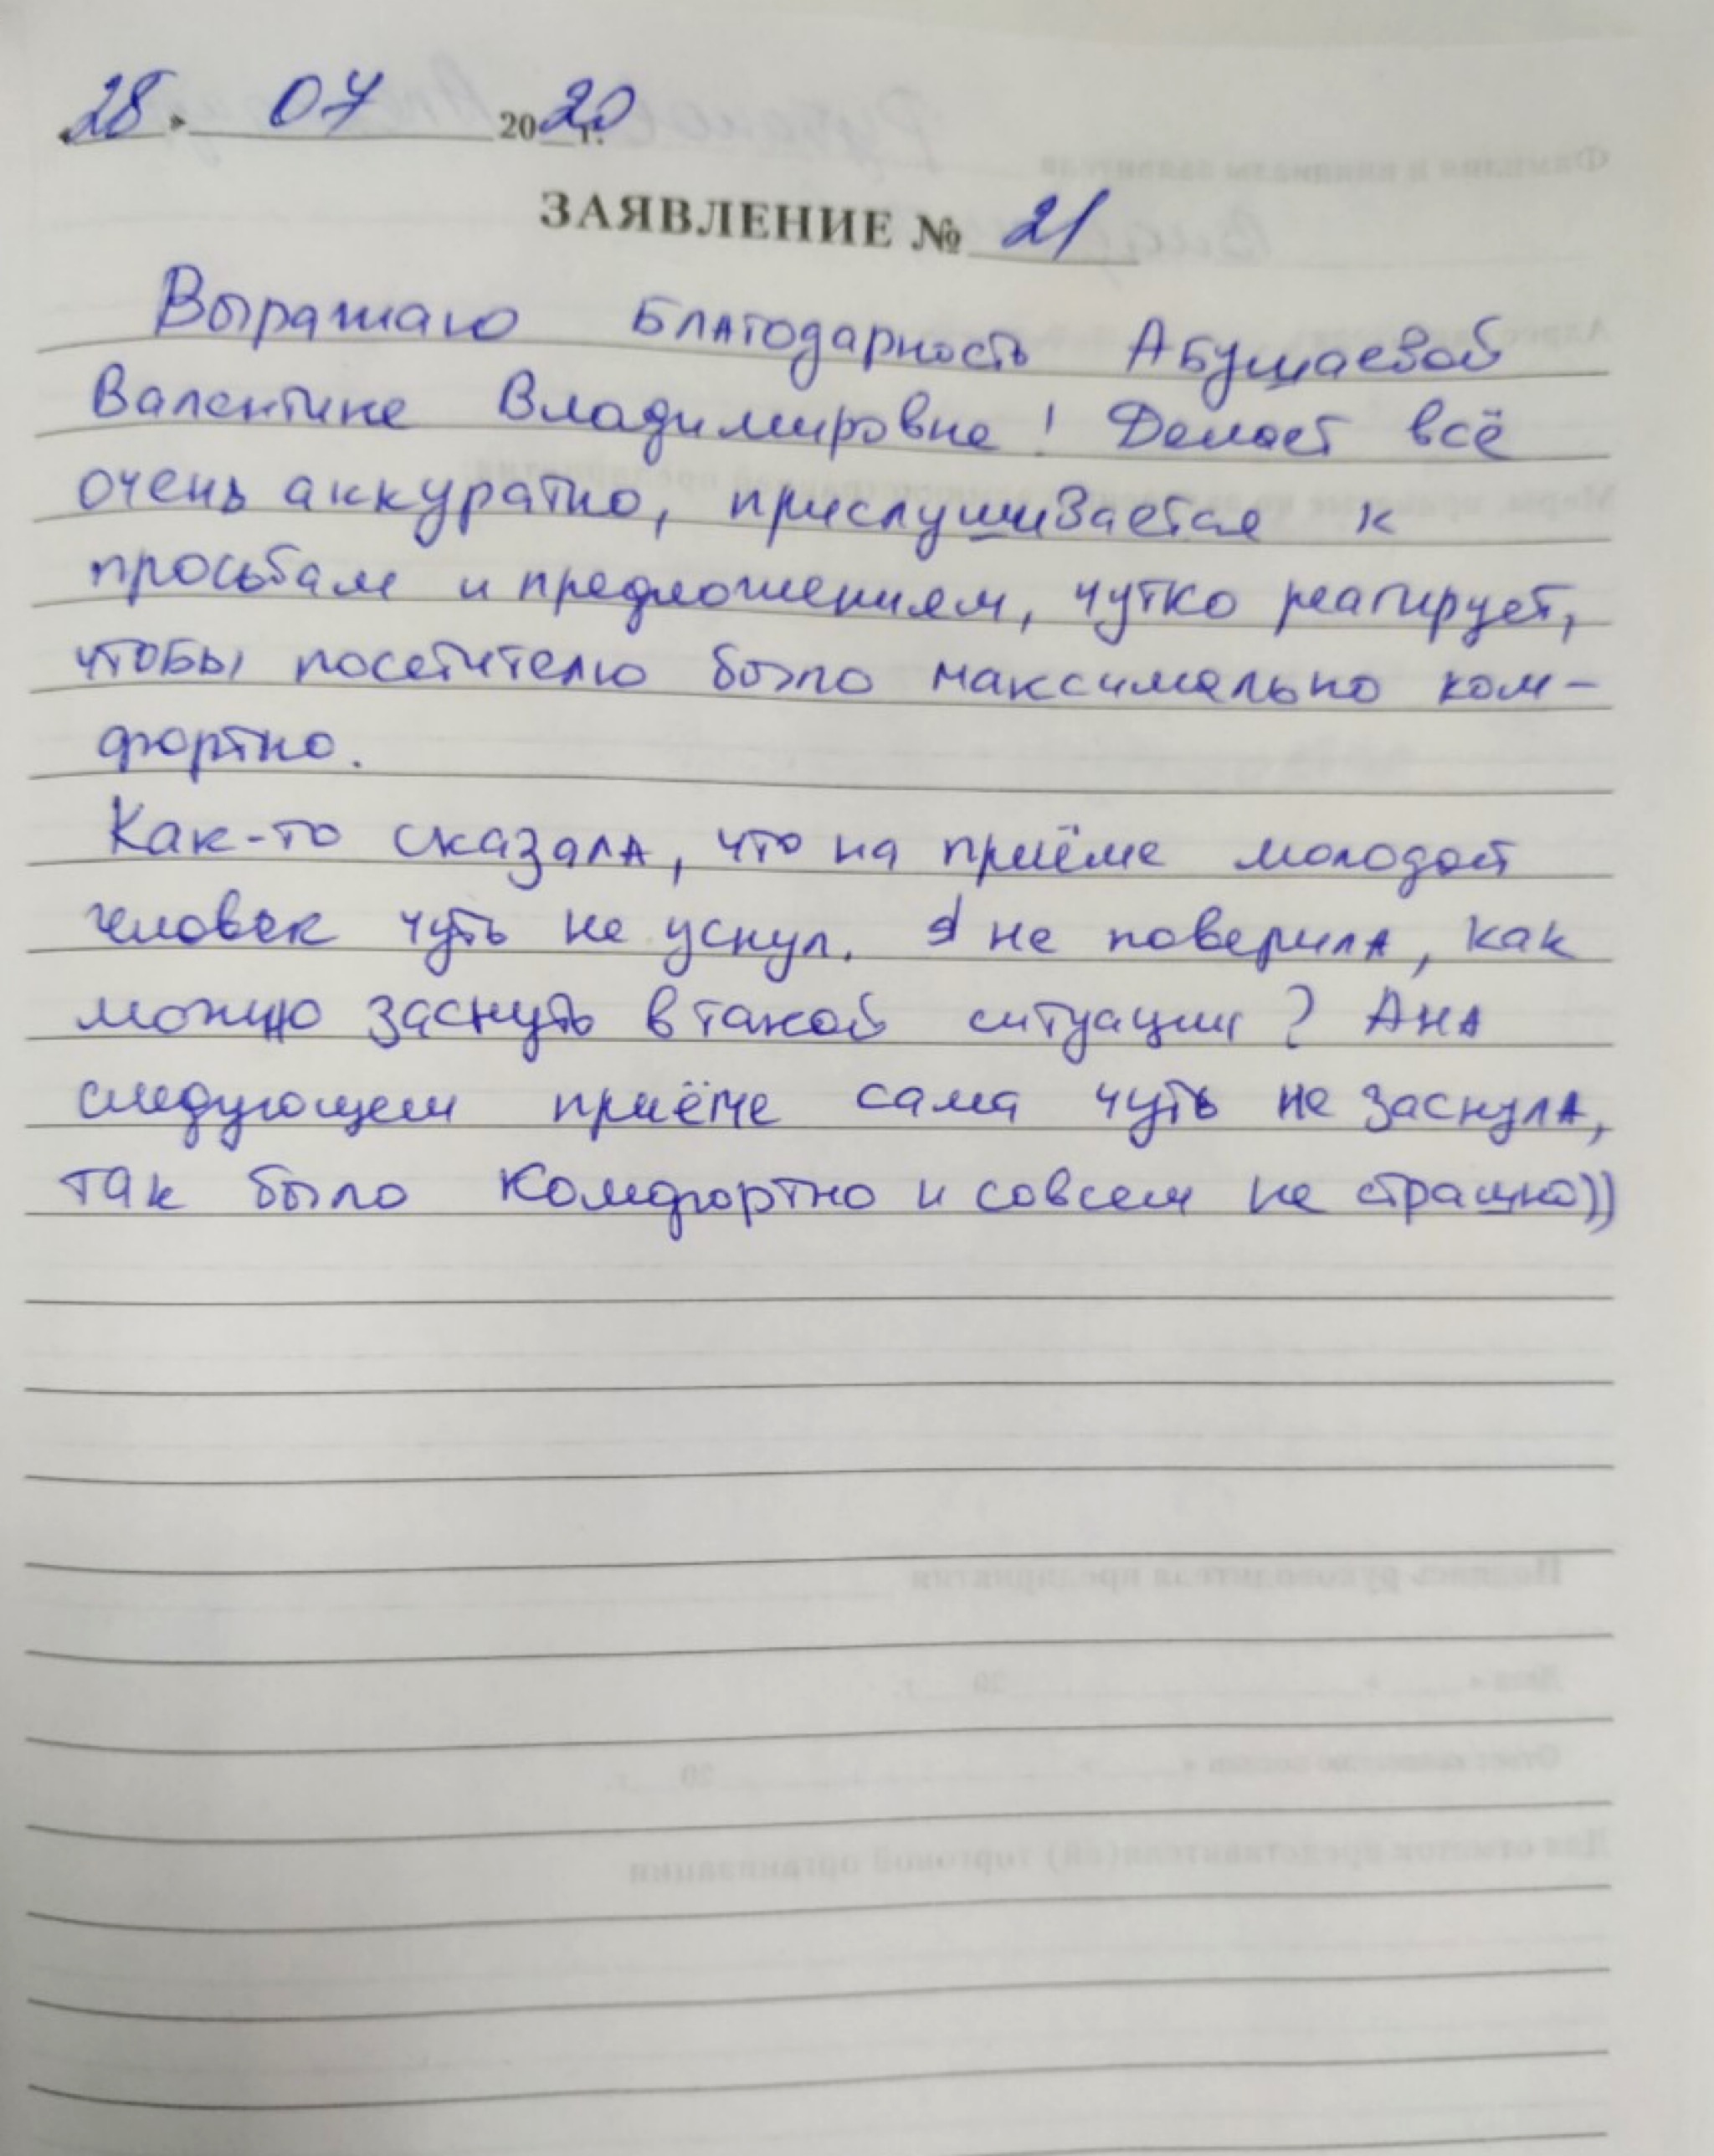 «28» 07 2020 г.
ЗАЯВЛЕНИЕ № 21
Выражаю Благодарность Абушаевой
Валентине Владимировне! Делает всё
очень аккуратно, прислушивается к
просьбам и предложениям, чутко реагирует,
чтобы посетителю было максимально ком-
фортно.
Как-то сказала, что на приёме молодой
человек чуть не уснул. Я не поверила, как
можно заснуть в такой ситуации? А на
следующем приёме сама чуть не заснула,
так было комфортно и совсем не страшно))